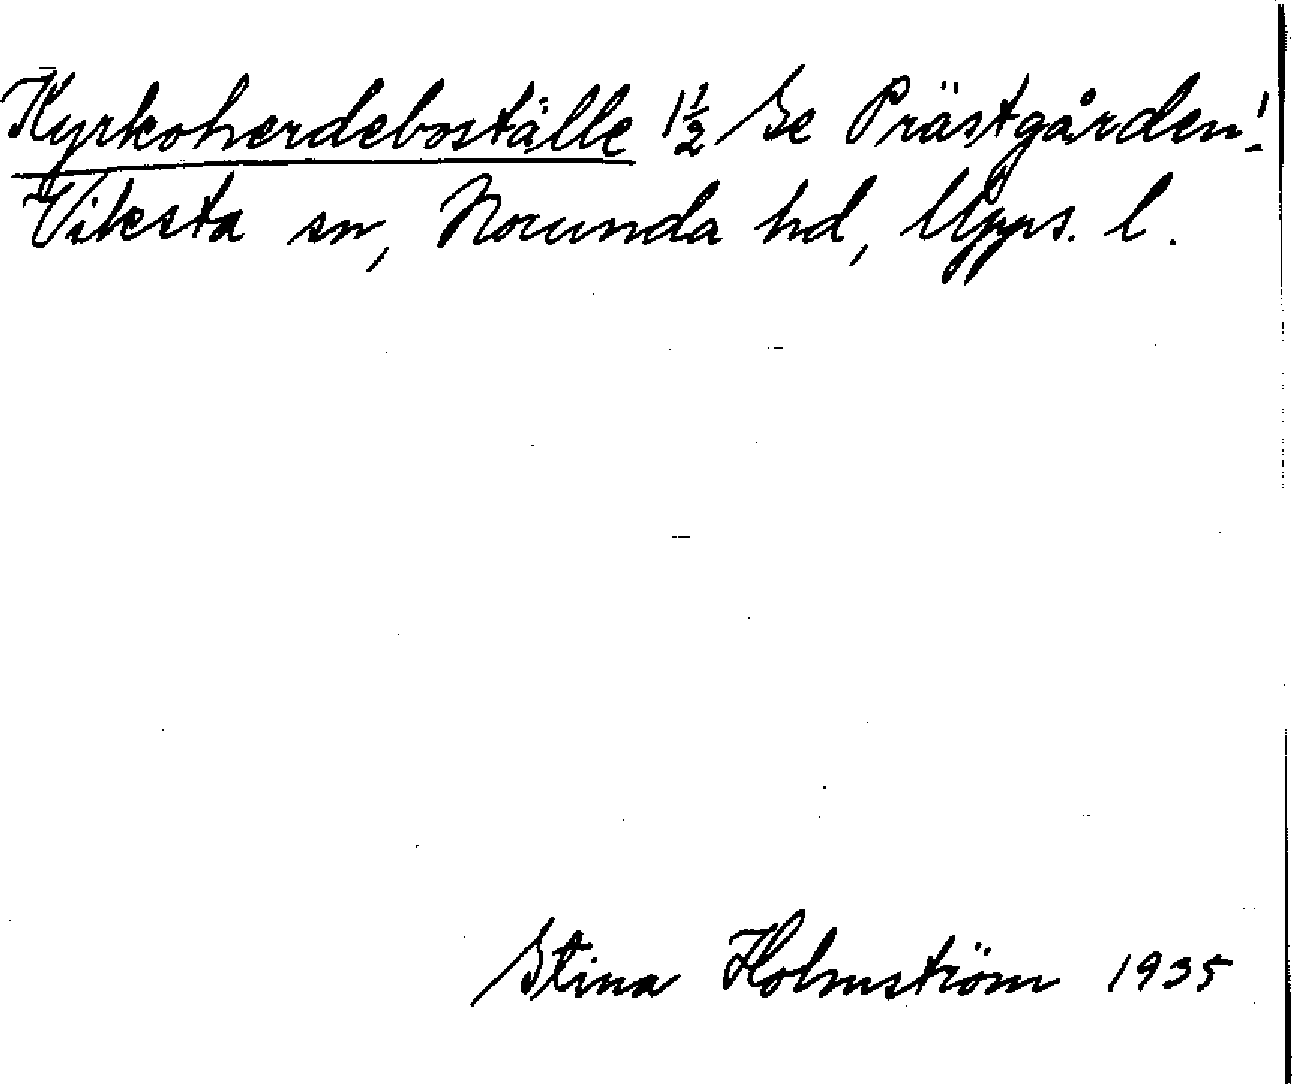 Kyrkoherdeboställe 1½ Se Prästgården!
Viksta sn, Norunda hd, Upps. l.
Stina Holmström 1935